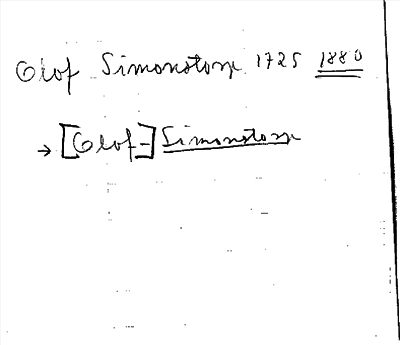 Olof Simonstorp 1725 1880
→ [Olof-] Simonstorp